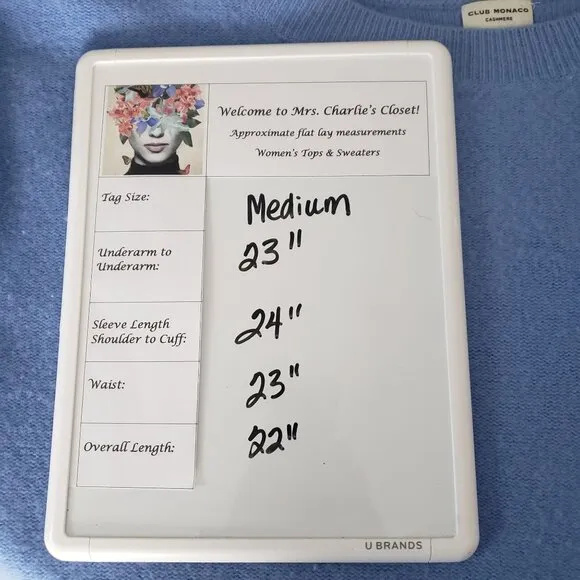 CLUB MONACO
CASHMERE
Welcome to Mrs. Charlie's Closet!
Approximate flat lay measurements
Women's Tops & Sweaters
Tag Size:
Medium
Underarm to
Underarm:
23"
Sleeve Length
Shoulder to Cuff:
24"
Waist:
23"
Overall Length:
22"
U BRANDS